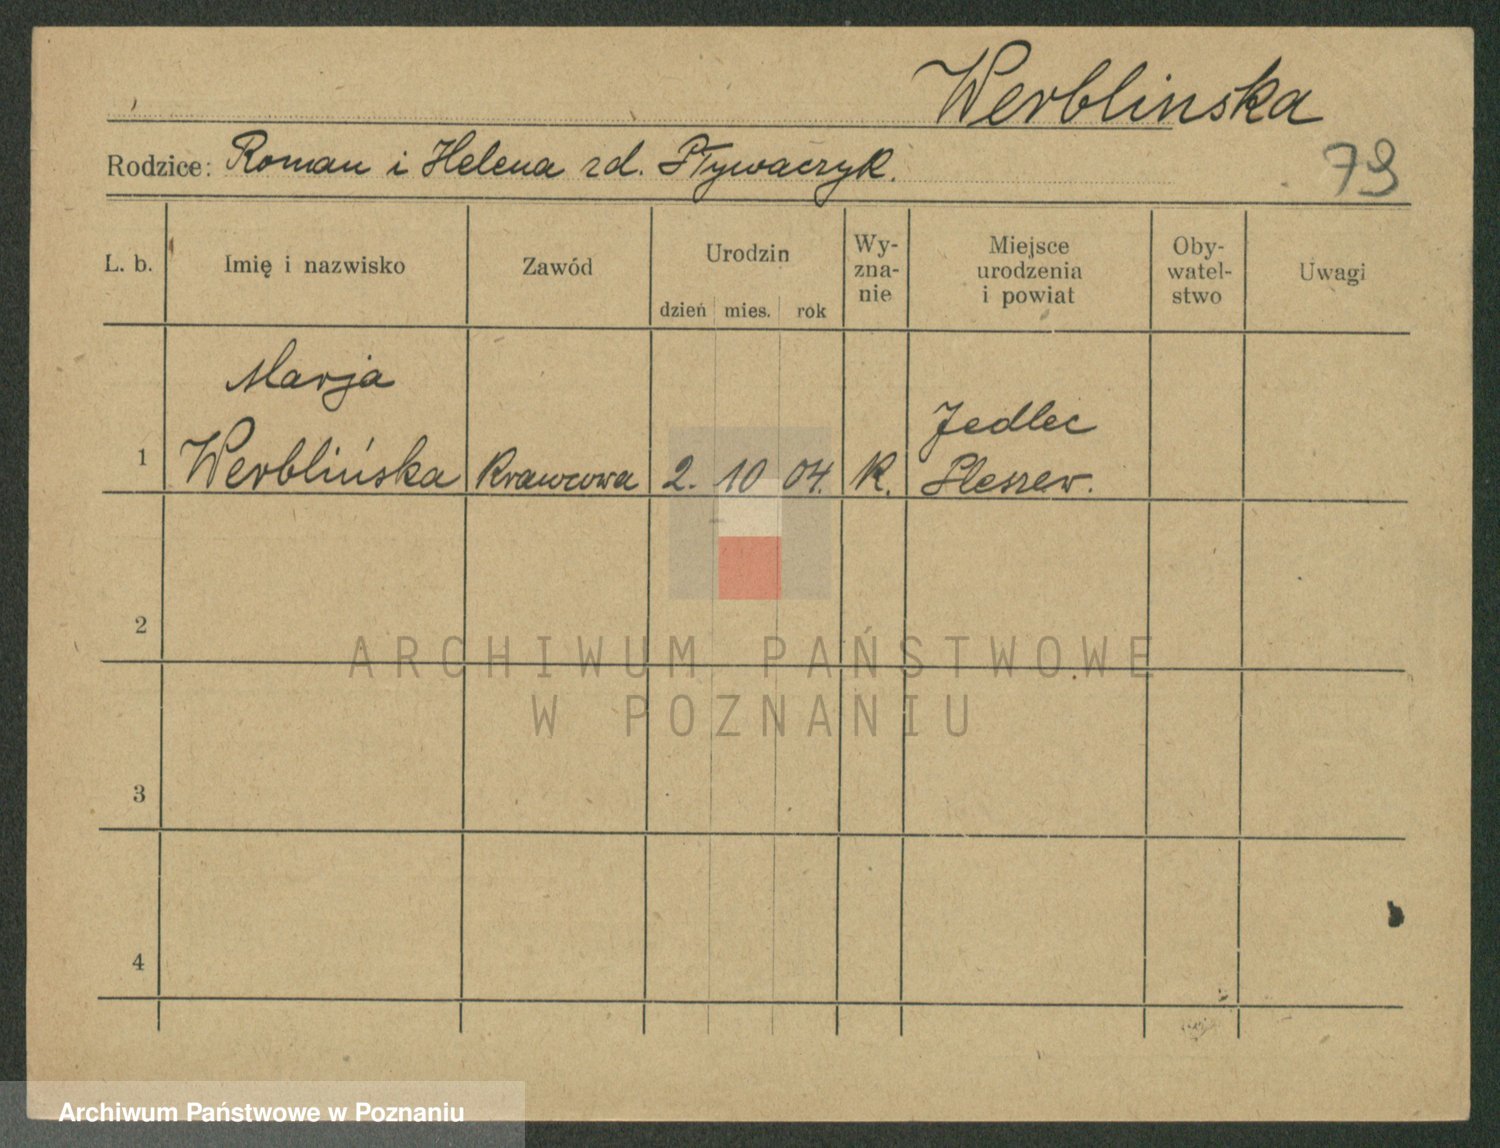 Werblinska
Rodzice: Roman i Helena zd. Pływaczyk.
79
L. b. Imię i nazwisko Zawód Urodzin dzień mies. rok Wy-zna-nie Miejsce urodzenia i powiat Oby-watel-stwo Uwagi
Marja Jedlec
1 Werblińska Krawcowa 2. 10 04. K. Pleszew.
2
ARCHIWUM PAŃSTWOWE
W POZNANIU
3
4
Archiwum Państwowe w Poznaniu